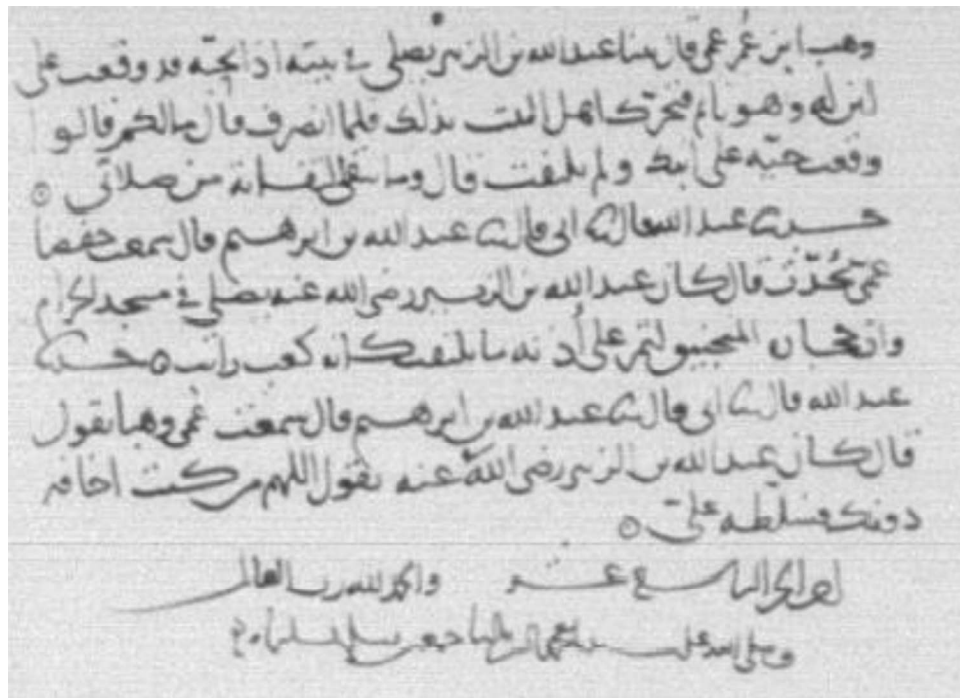 وهب ابن عمر عمي قال بينا عبد الله بن الزبير يصلي في بيته اذا بحية قد وقعت على
ابن له وهو نائم فتحرك اهل البيت بذلك فلما انصرف قال مالكم قالوا
وقعت حية على ابنك ولم تلتفت قال وما من صلاتي
حدثنا عبد الله قال ثنا ابي قال ثنا عبد الله بن ابرهيم قال سمعت حفصا
عمي يحدث قال كان عبد الله بن الزبير رضي الله عنه يصلي في مسجد الحرام
وان المنجنيق لتمر على اذنه ما يلتفت كانه كعب راتب حدثنا
عبد الله قال ثنا ابي قال ثنا عبد الله بن ابرهيم قال سمعت عمي وهبا يقول
قال كان عبد الله بن الزبير رضي الله عنه يقول اللهم من كنت اخافه
دونك فسلطه علي
اخر الجزء عشر والحمد لله رب العالمين
وصلى الله على